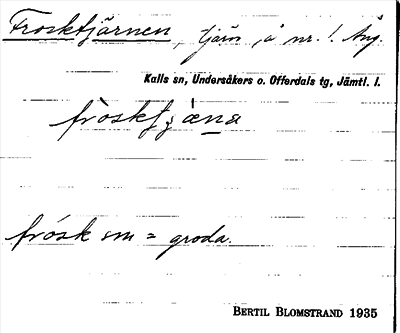 Frosktjärnen, tjärn å nr. 1. Äng.
Kalls sn, Undersåkers o. Offerdals tg, Jämtl. l.
frosktjæna
frósk sm = groda.
BERTIL BLOMSTRAND 1935